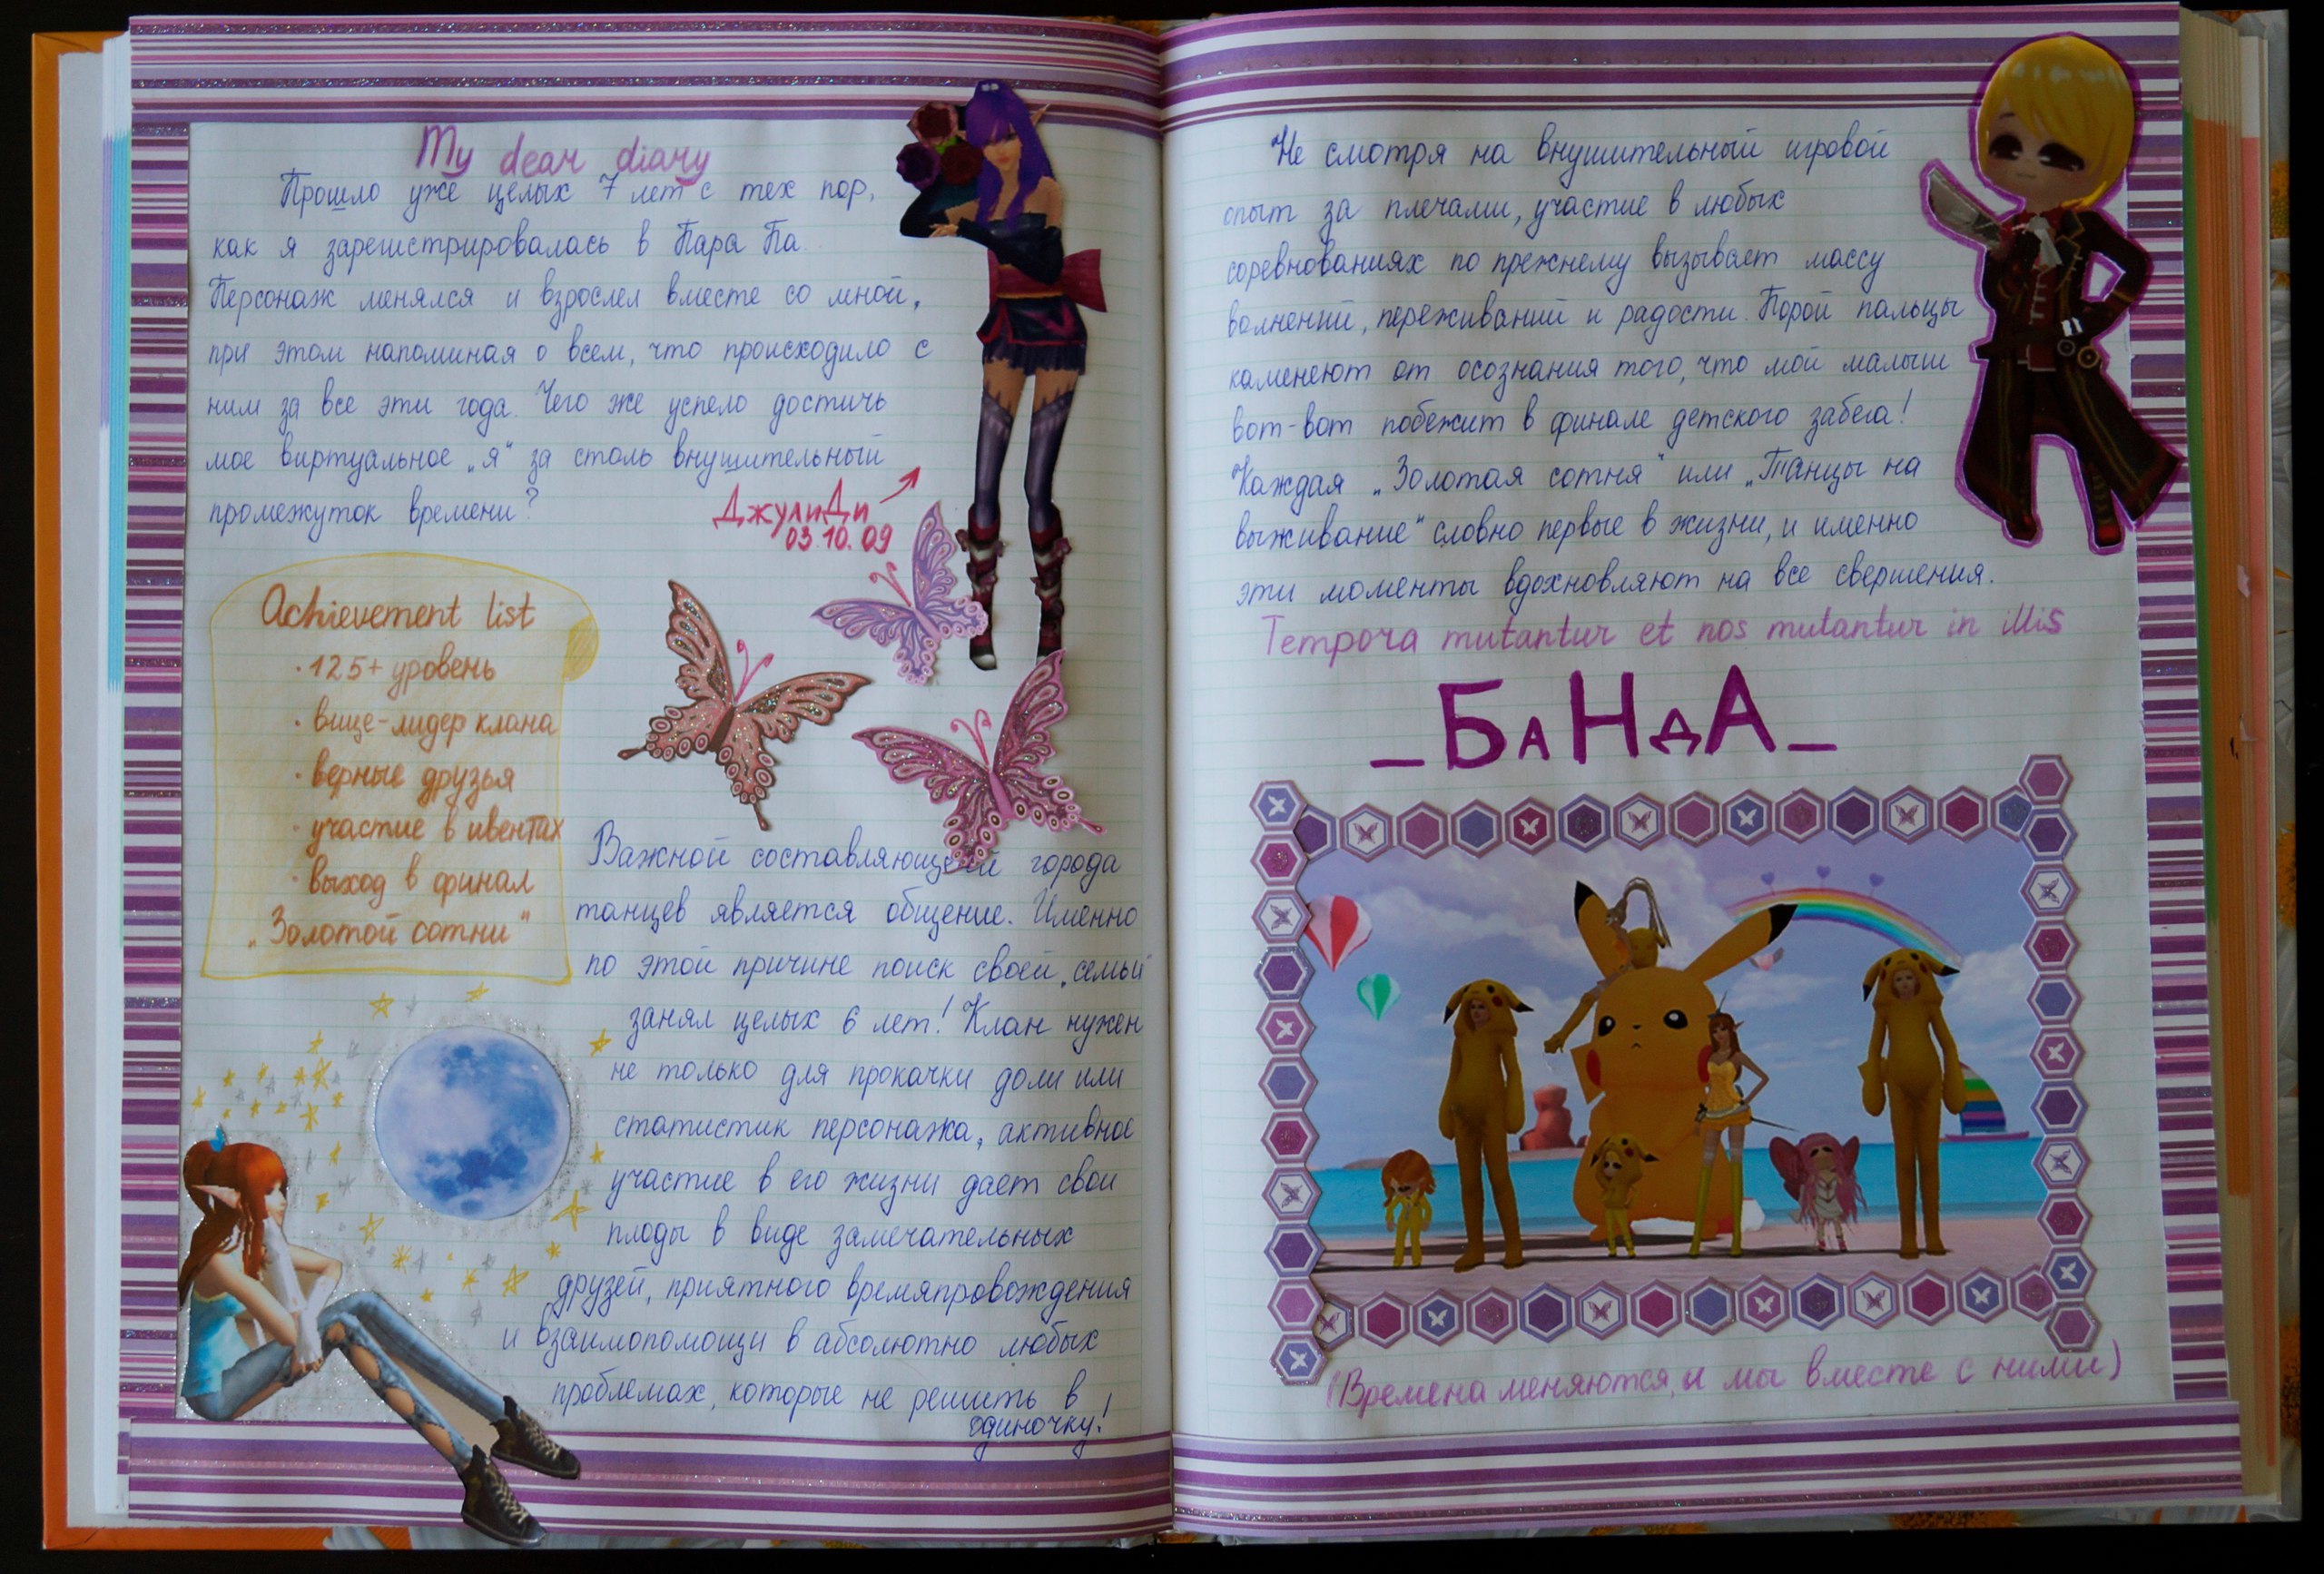 My dear diary
Прошло уже целых 7 лет с тех пор,
как я зарегистрировалась в Пара Па.
Персонаж менялся и взрослел вместе со мной,
при этом напоминая о всем, что происходило с
ним за все эти года. Чего же успело достичь
мое виртуальное „я“ за столь внушительный
промежуток времени?
ДжулиДи
03.10.09
Achievement list
· 125+ уровень
· вице-лидер клана
· верные друзья
· участие в ивентах
· выход в финал
„Золотой сотни“
Важной составляющей города
танцев является общение. Именно
по этой причине поиск своей „семьи“
занял целых 6 лет! Клан нужен
не только для прокачки доли или
статистик персонажа, активное
участие в его жизни дает свои
плоды в виде замечательных
друзей, приятного времяпровождения
и взаимопомощи в абсолютно любых
проблемах, которые не решить в
одиночку!
Не смотря на внушительный игровой
опыт за плечами, участие в любых
соревнованиях по прежнему вызывает массу
волнений, переживаний и радости. Порой пальцы
каменеют от осознания того, что мой малыш
вот-вот побежит в финале детского забега!
Каждая „Золотая сотня“ или „Танцы на
выживание“ словно первые в жизни, и именно
эти моменты вдохновляют на все свершения.
Tempora mutantur et nos mutantur in illis
_БАНДА_
(Времена меняются, и мы вместе с ними)